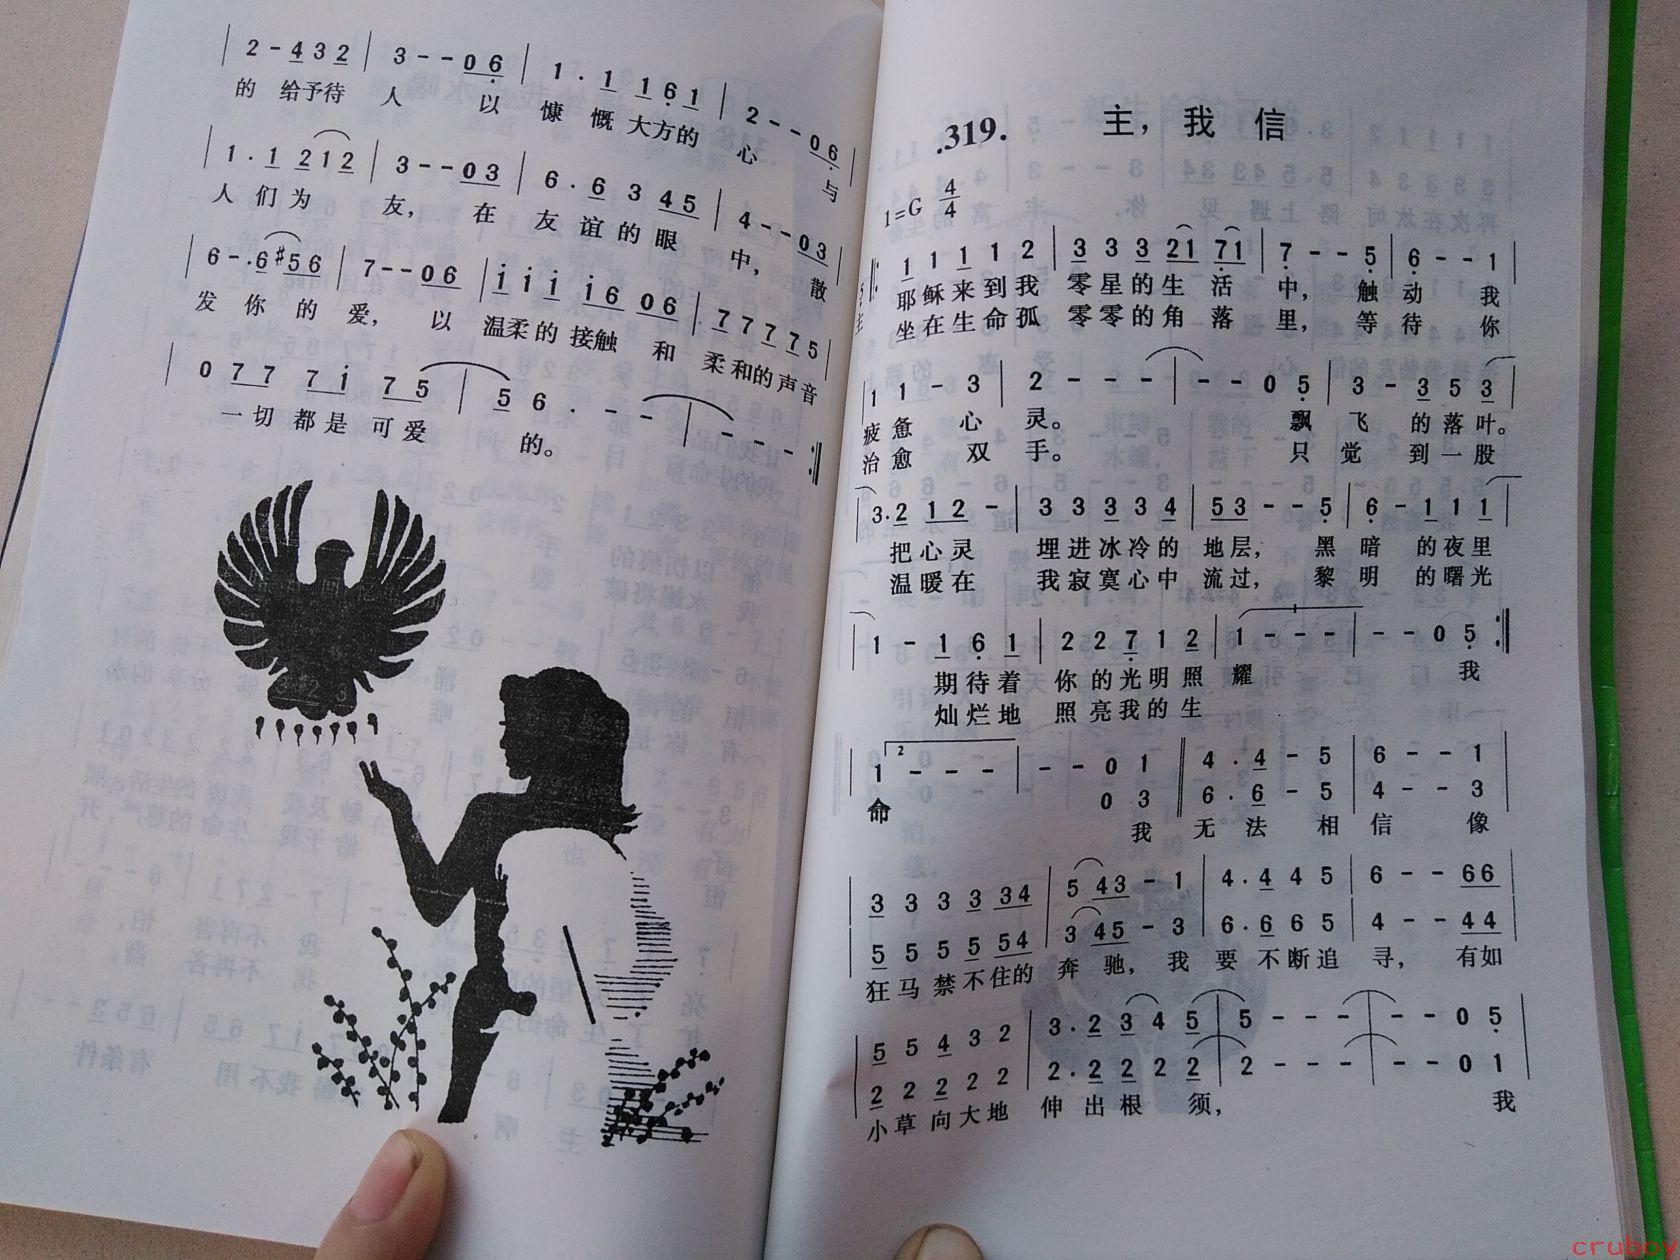 2 - 4 3 2 | 3 - - 0 6 | 1 . 1 1 6 1 | 2 - - 0 6 |
的 给予待 人 以 慷 慨 大方的 心 与
1 . 1 2 1 2 | 3 - - 0 3 | 6 . 6 3 4 5 | 4 - - 0 3 |
人 们 为 友, 在 友 谊 的 眼 中, 散
6 - . 6 #5 6 | 7 - - 0 6 | i i i i 6 0 6 | 7 7 7 7 5
发 你 的 爱, 以 温柔的 接触 和 柔和的声音
0 7 7 7 i 7 5 | 5 6 . - - | - - :||
一切 都是 可爱 的。
.319. 主, 我 信
1=G 4/4
||: 1 1 1 1 2 | 3 3 3 2 1 7 1 | 7 - - 5 | 6 - - 1 |
耶稣来到我 零星的生 活 中, 触 动 我
坐在生命孤 零零的角 落 里, 等 待 你
1 1 - 3 | 2 - - - | - - 0 5 | 3 - 3 5 3 |
疲惫 心 灵。 飘 飞 的落叶。
治愈 双 手。 只 觉 到一股
3 . 2 1 2 - | 3 3 3 3 4 | 5 3 - - 5 | 6 - 1 1 1 |
把心灵 埋进冰冷的 地层, 黑 暗 的夜里
温暖在 我寂寞心中 流过, 黎 明 的曙光
1 - 1 6 1 | 2 2 7 1 2 | 1 - - - | - - 0 5 :||
期待着 你的光明照 耀 我
灿烂地 照亮我的生
2
1 - - - | - - 0 1 || 4 . 4 - 5 | 6 - - 1 |
0 3 || 6 . 6 - 5 | 4 - - 3
命 我 无 法 相 信 像
3 3 3 3 3 4 | 5 4 3 - 1 | 4 . 4 4 5 | 6 - - 6 6 |
5 5 5 5 5 4 | 3 4 5 - 3 | 6 . 6 6 5 | 4 - - 4 4
狂马禁不住的 奔驰, 我 要 不断追 寻, 有如
5 5 4 3 2 | 3 . 2 3 4 5 | 5 - - - | - - 0 5 |
2 2 2 2 2 | 2 . 2 2 2 2 | 2 - - - | - - 0 1
小草向大地 伸 出 根 须, 我
cruboy